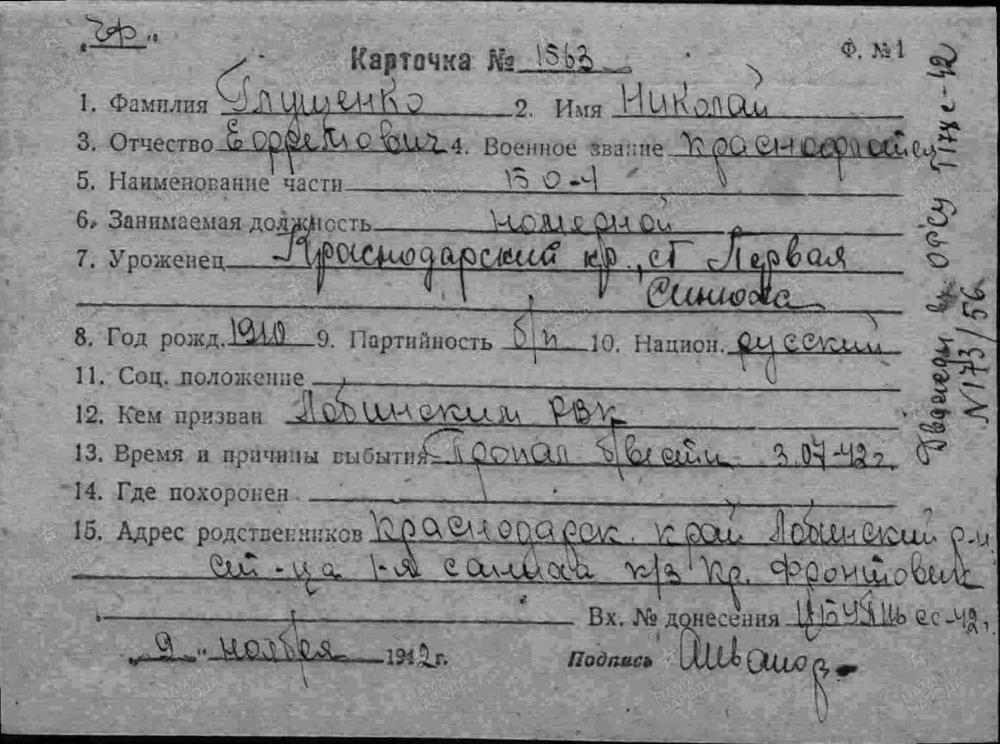 Ф. №1
Карточка № 1563
1. Фамилия Глущенко 2. Имя Николай
3. Отчество Ефремович 4. Военное звание краснофлотец
5. Наименование части
6. Занимаемая должность номерной
7. Уроженец Краснодарский кр., ст Первая
Синюха
8. Год рожд. 1910 9. Партийность б/п 10. Национ. русский
11. Соц. положение
12. Кем призван Лабинским РВК
13. Время и причины выбытия Пропал б/вести 3.07-42г.
14. Где похоронен
15. Адрес родственников Краснодарск. край Лабинский р-н.
ст-ца 1-я к/з Кр. Фронтовик
Вх. № донесения
„9" ноября 1942г. Подпись
N 173/56